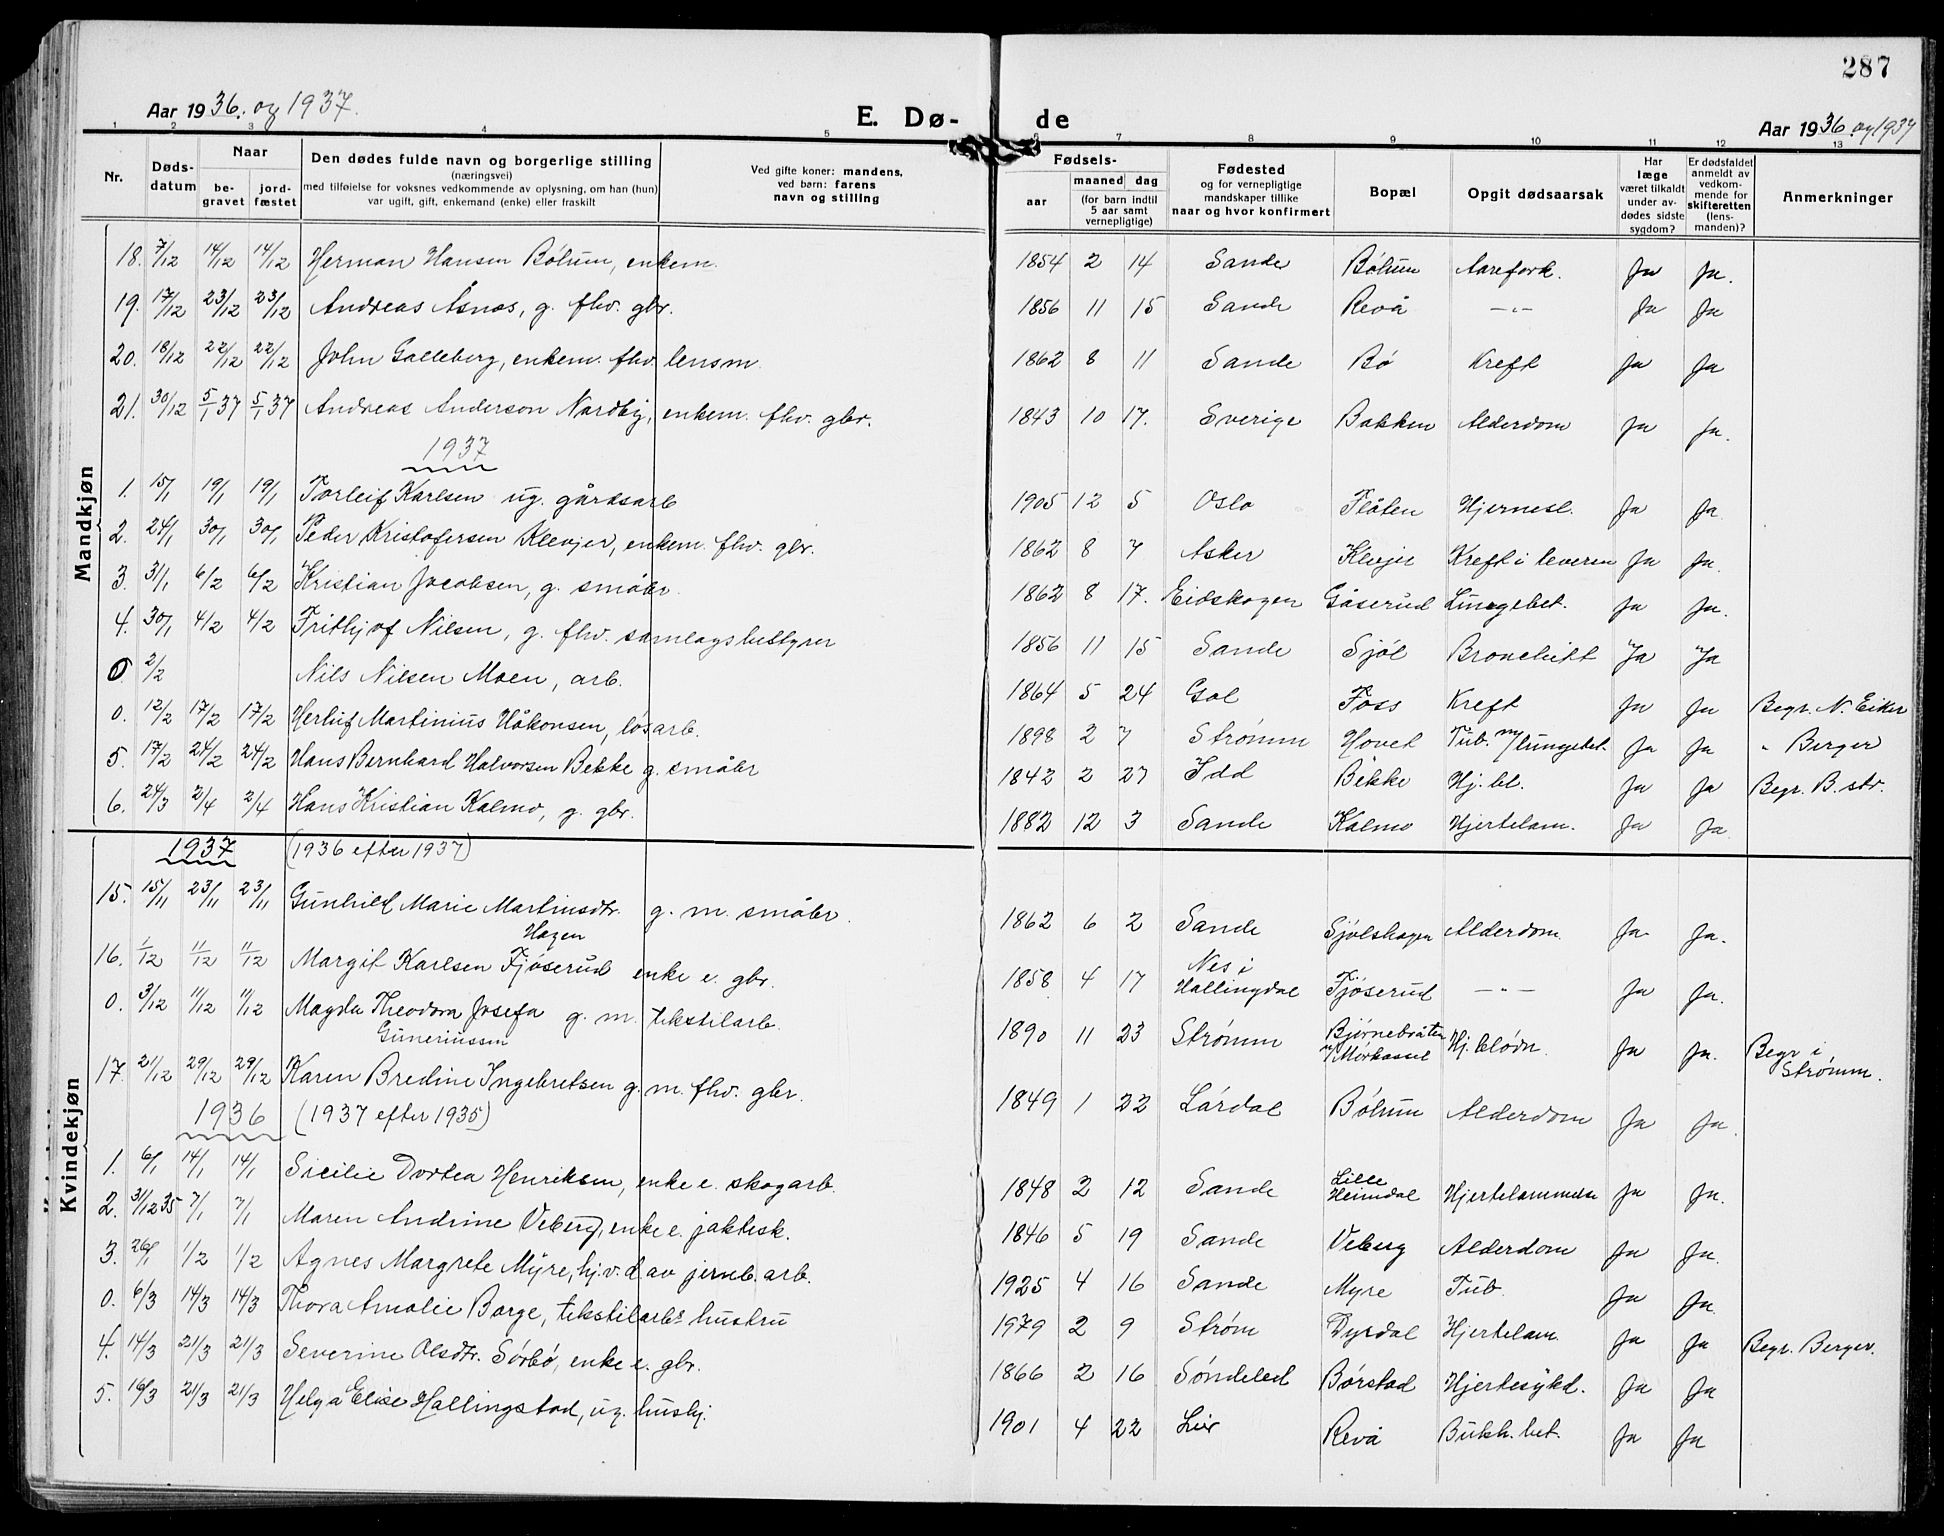 287
Aar 1936. og 1937.
E. Dø-
de
Aar 1936. og 1937
1 2 3 4 5 6 7 8 9 10 11 12 13
Nr.
Døds-datum
Naar
be-gravet
jord-fæstet
Den dødes fulde navn og borgerlige stilling
(næringsvei)
med tilføielse for voksnes vedkommende av oplysning, om han (hun)
var ugift, gift, enkemand (enke) eller fraskilt
Ved gifte koner: mandens,
ved børn: farens
navn og stilling
Fødsels-
aar
maaned dag
(for barn indtil
5 aar samt
vernepligtige)
Fødested
og for vernepligtige
mandskaper tillike
naar og hvor konfirmert
Bopæl
Opgit dødsaarsak
Har
læge
været tilkaldt
under av-
dødes sidste
sygdom?
Er dødsfaldet
anmeldt av
vedkom-
mende for
skifteretten
(lens-
manden)?
Anmerkninger
Mandkjøn
18. 7/12 14/12 14/12 Herman Hansen Bølum, enkem. 1854 2 14 Sande Bølum Aarefork. Ja Ja.
19. 17/12 23/12 23/12 Andreas Åsnes, g. fhv. gbr. 1856 11 15 Sande Revå —"— Ja Ja
20. 18/12 22/12 22/12 John Galleberg, enkem. fhv. lensm. 1862 8 11 Sande Bø Kreft Ja Ja
21. 30/12 5/1 37 5/1 37 Andreas Anderson Nordby, enkem. fhv. gbr. 1843 10 17. Sverige Bakken Alderdom Ja Ja.
1937
1. 15/1 19/1 19/1 Torleif Karlsen ug. gårdsarb 1905 12 5 Oslo Flåten Hjernesl. Ja Ja
2. 24/1 30/1 30/1 Peder Kristofersen Klevjer, enkem. fhv. gbr. 1862 8 7 Asker Klevjer Kreft i leveren Ja Ja.
3. 31/1 6/2 6/2 Kristian Jocobsen, g. småbr. 1862 8 17. Eidskogen Gåserud Lungebet. Ja Ja.
4. 30/1 4/2 4/2 Frithjof Nilsen, g. fhv. samlagsbestyrer 1856 11 15 Sande Sjøl Bronchitt Ja Ja
0 2/2 Nils Nilsen Moen, arb. 1864 5 24 Gol Foss Kreft Ja Ja Begr. N. Eiker
0. 12/2 17/2 17/2 Herluf Martinius Håkonsen, løsarb. 1898 2 7 Strømm Hovet Tub. m/lungebet. Ja Ja " Berger
5. 17/2 24/2 24/2 Hans Bernhard Halvorsen Bekke g. småbr 1842 2 27 Idd Bekke Hj. bl. Ja Ja Begr. B. str.
6. 24/3 2/4 2/4 Hans Kristian Kalmo, g. gbr. 1882 12 3 Sande Kalmo Hjertelam. Ja Ja
Kvindekjøn
1937 (1936 efter 1937)
15. 15/11 23/11 23/11 Gunhild Marie Martinsdtr. g. m. småbr. 1862 6 2 Sande Sjølskogen Alderdom. Ja Ja.
Hagen
16. 1/12 11/12 11/12 Margit Karlsen Fjøserud enke e. gbr. 1858 4 17 Nes i Hallingdal Fjøserud —"— Ja Ja.
0. 3/12 11/12 11/12 Magda Theodora Josefa g. m. tekstilarb. 1890 11 23 Strømm Bjørnebråten u/Mørkassel Hj. blødn. Ja Ja. Begr i Strømm.
Guneriussen
17. 21/12 29/12 29/12 Karen Bredine Ingebretsen g. m. fhv. gbr. 1849 1 22 Lårdal Bølum Alderdom Ja Ja.
1936 (1937 efter 1935)
1. 6/1 14/1 14/1 Sicilie Dortea Henriksen, enke e. skogarb. 1848 2 12 Sande Lille Heimdal Hjertelammelse Ja Ja.
2. 31/12 35 7/1 7/1 Maren Andrine Veberg, enke e. jaktesk. 1846 5 19 Sande Veberg Alderdom Ja Ja.
3. 26/1 1/2 1/2 Agnes Margrete Myre, hj. v. d. av jernb. arb. 1925 4 16 Sande Myre Tub. Ja Ja.
0. 6/3 14/3 14/3 Thora Amalie Borge, tekstilarbs hustru 1979 2 9 Strøm Dyrdal Hjertelam. Ja Ja Begr. Berger.
4. 14/3 21/3 21/3 Severine Olsdtr. Sørbø, enke e. gbr. 1866 2 16 Søndeled Børstad Hjertesykd. Ja Ja
5. 16/3 21/3 21/3 Helga Elise Hallingstad, ug. hushj. 1901 4 22 Lier Revå Bukh. bet. Ja Ja